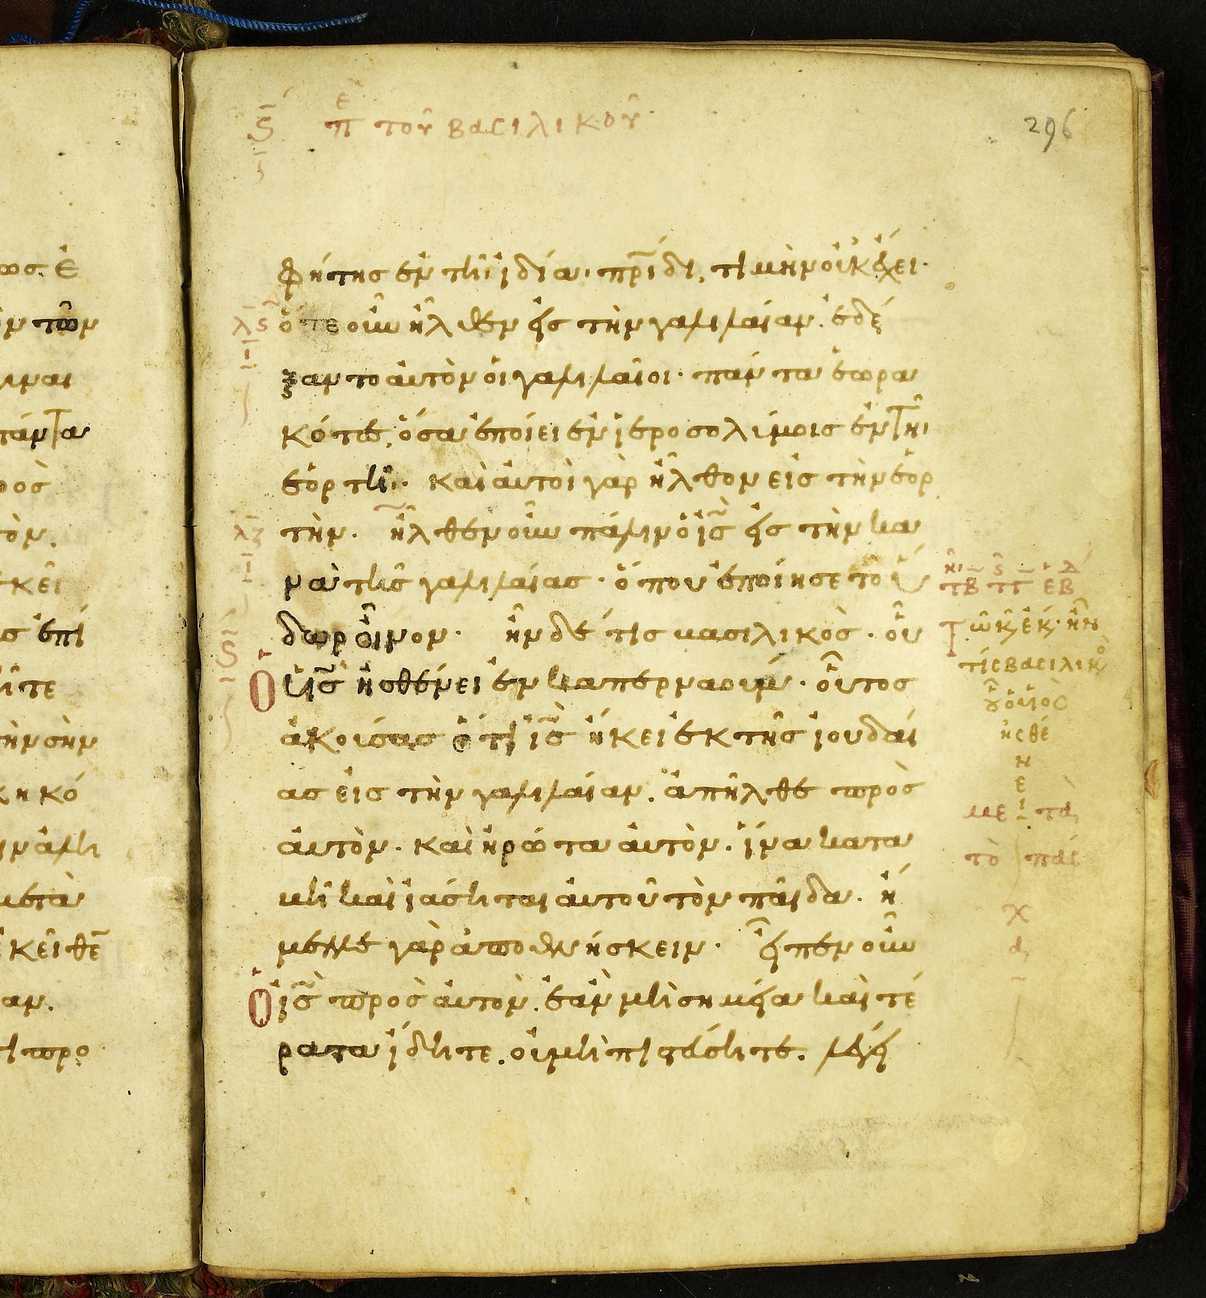 ϛ πε τοῦ βασιλικοῦ
296
φήτης ἐν τῆ ἰδία πρ̅ίδι, τιμὴν οὐκ ἔχει·
λϛ ὅτε οὖν ἦλθεν εἰς τὴν γαλιλαίαν, ἐδέ
ξαντο αὐτὸν οἱ γαλιλαῖοι· πάντα ἑωρα
κότες, ὅσα ἐποίει ἐν ἱεροσολύμοις ἐν τῆ
ἑορτῆ· καὶ αὐτοὶ γὰρ ἦλθον εἰς τὴν ἑορ
λζ τὴν· ἦλθεν οὖν πάλιν ὁ ι̅ς̅ εἰς τὴν κα
νὰ τῆς γαλιλαίας· ὅπου ἐποίησε τὸ ὕ
δωρ οἶνον· ἦν δέ τις βασιλικὸς· οὗ
ὁ υἱὸς ἠσθένει ἐν καπερναούμ· οὗτος
ἀκούσας ὅτι ι̅ς̅ ἥκει ἐκ τῆς ἰουδαί
ας εἰς τὴν γαλιλαίαν, ἀπῆλθε πρὸς
αὐτὸν· καὶ ἠρώτα αὐτὸν, ἵνα κατα
βῆ καὶ ἰάσηται αὐτοῦ τὸν παῖδα· ἤ
μελλε γὰρ ἀποθνήσκειν· εἶπεν οὖν
ὁ ι̅ς̅ πρὸς αὐτὸν, ἐὰν μὴ σημεῖα καὶ τέ
ρατα ἴδητε, οὐ μὴ πιστεύσητε. λέγει
τῶ κ ἐκ· ἦν
τίς βασιλικο
οὗ ὁ υἱὸς
ἠσθέ
ν
ε
ι